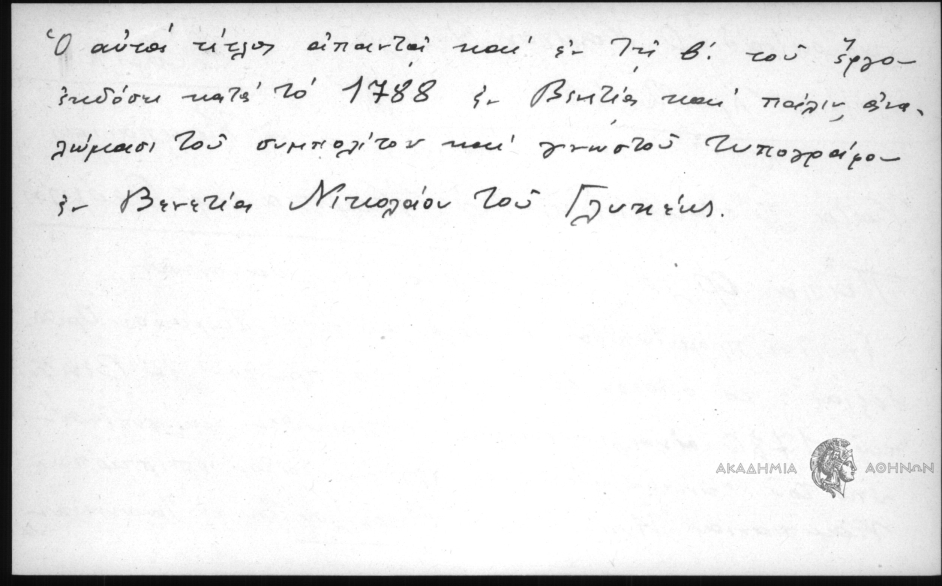 Ὁ αὐτός τίτλος ἀπαντᾶ καί ἐν τῇ β΄. τοῦ ἔργου
ἐκδόσει κατά τό 1788 ἐν Βενετίᾳ καί πάλιν ἀνα-
λώμασι τοῦ συμπολίτου καί γνωστοῦ τυπογράφου
ἐν Βενετίᾳ Νικολάου τοῦ Γλυκέως.
ΑΚΑΔΗΜΙΑ ΑΘΗΝΩΝ